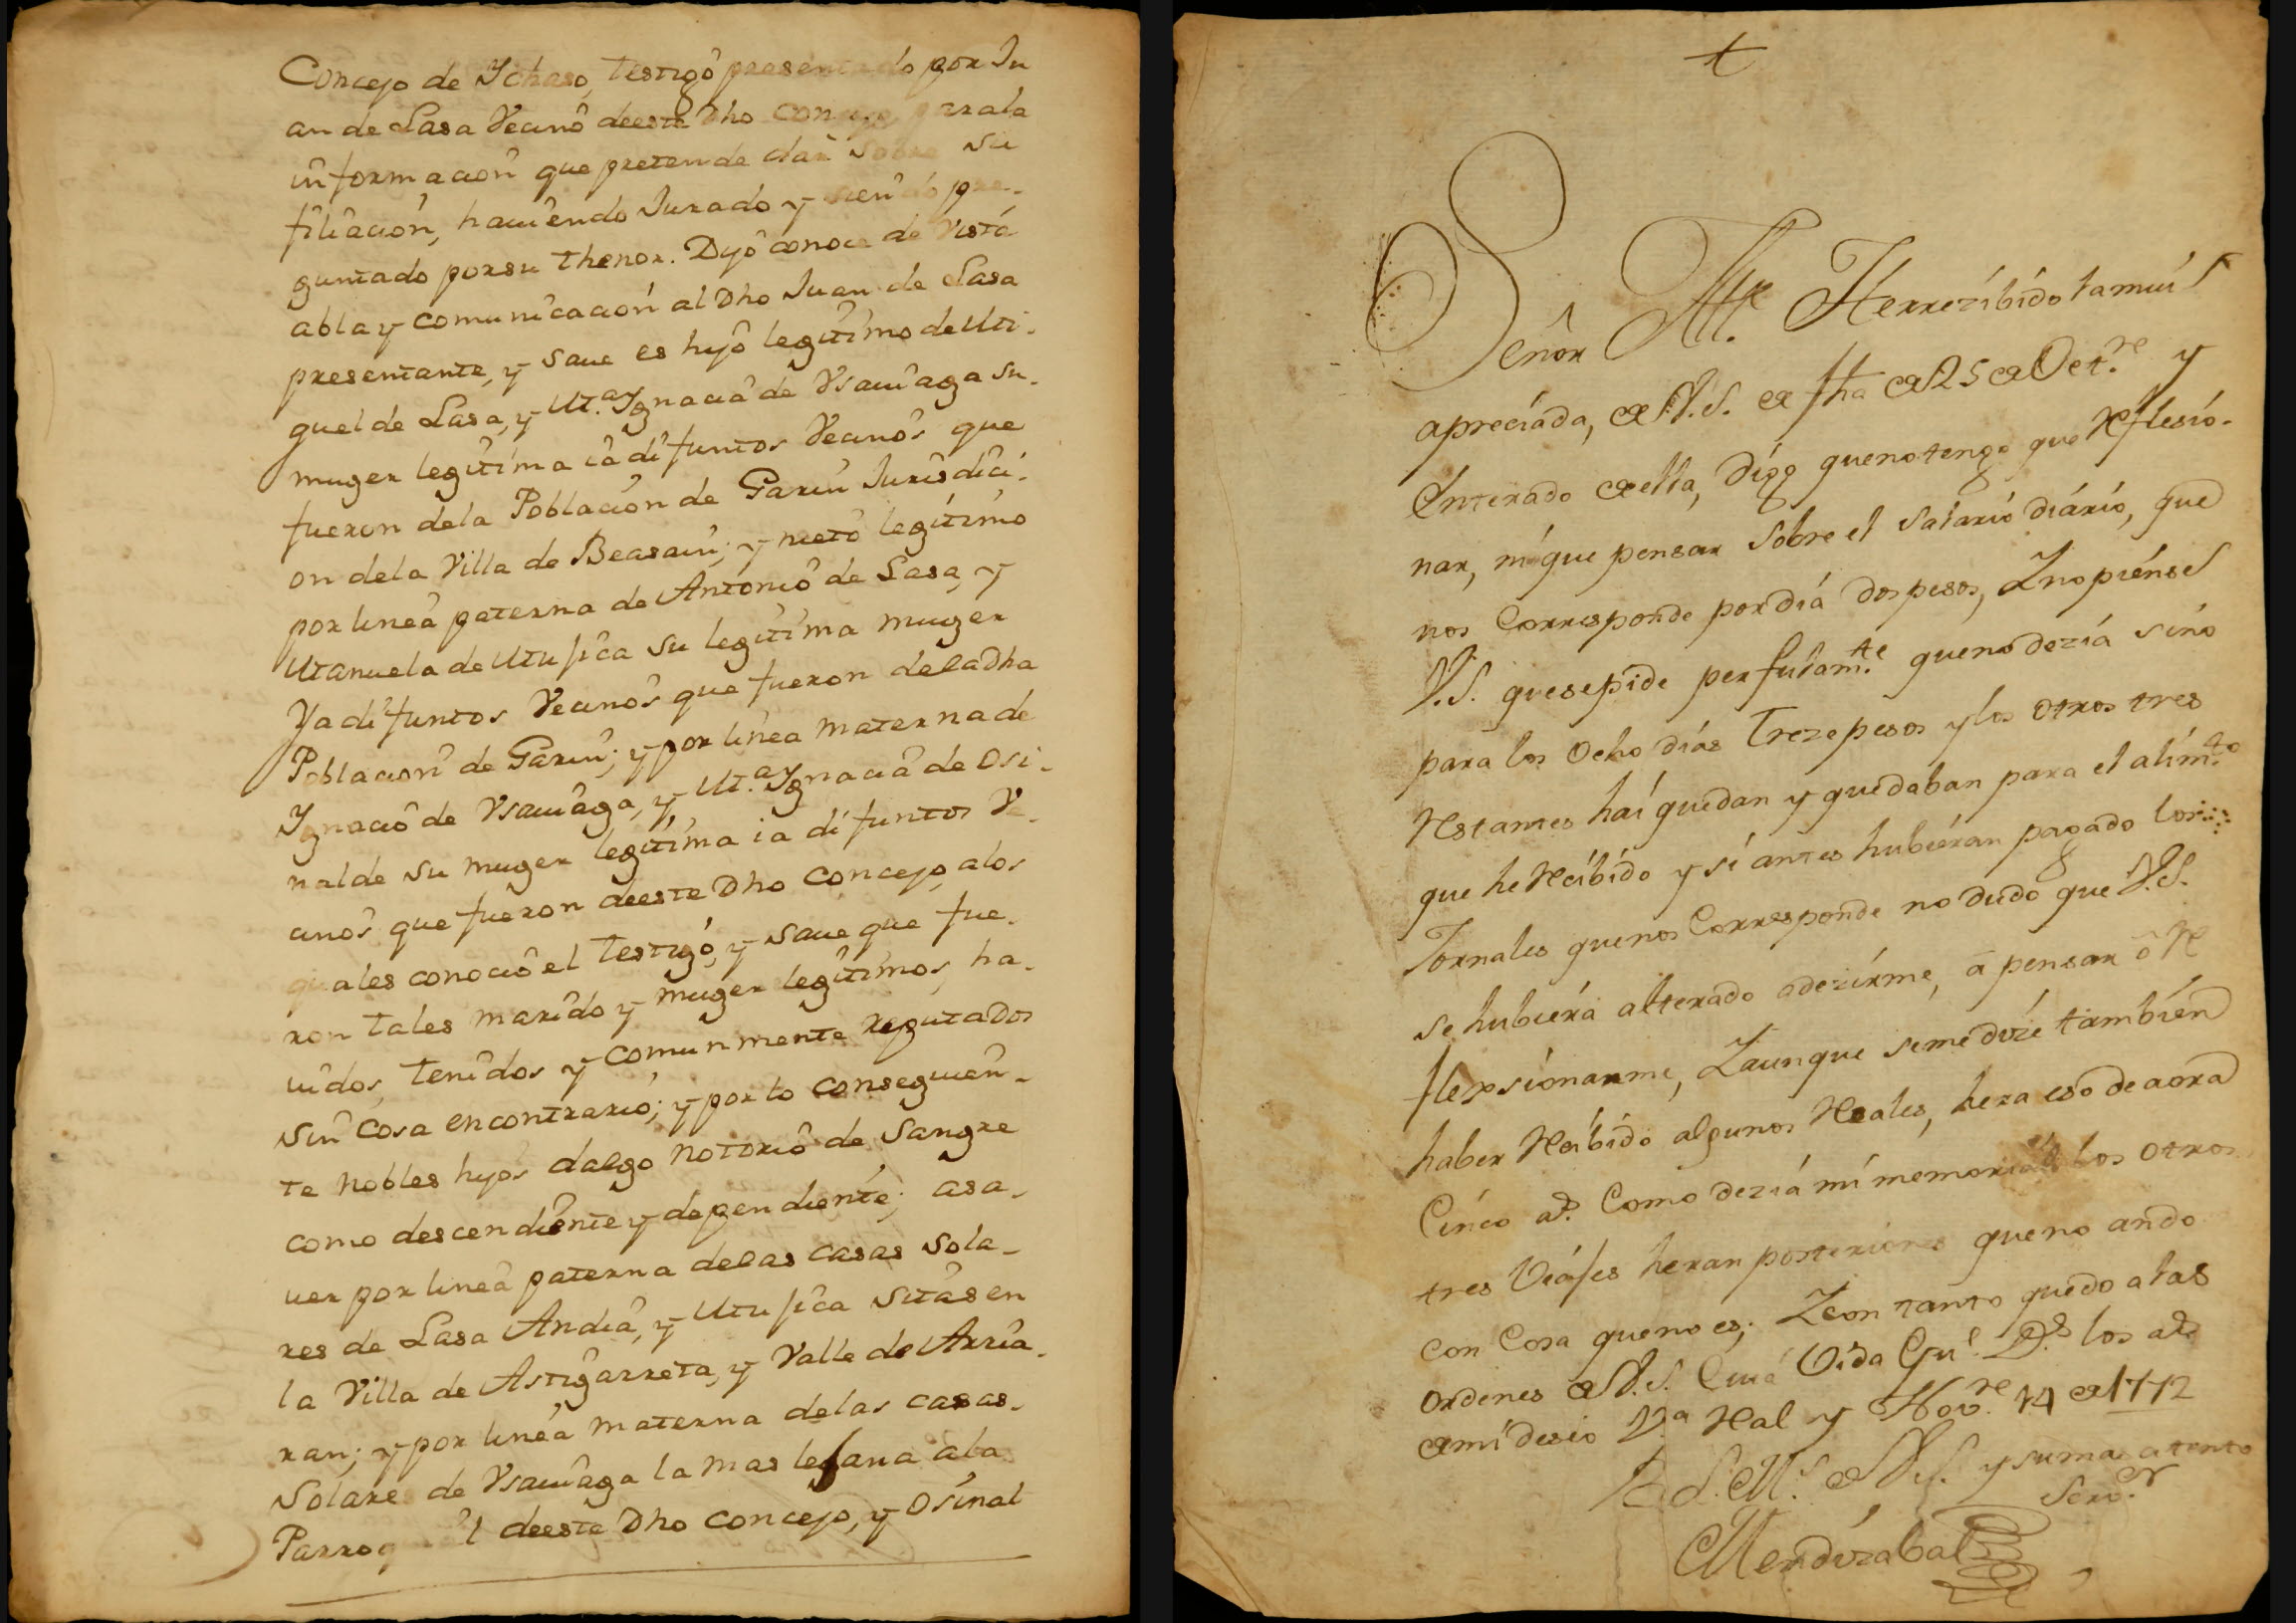 Concejo de Ychaso, testigo presentado por Ju
an de Lasa Vecino deeste Dho concejo parala
informacion que pretende dar sobre su
filiacion, haciendo Jurado y siendo pre-
guntado porsu thenor. Dijo conoce de vista
abla y comunicacion al Dho Juan de Lasa
presentante, y save es hijo legitimo de Mi-
guel de Lasa, y M.ª Ygnacia de Ysaciaga su
muger legitima ia difuntos Vecinos que
fueron dela Poblacion de Garin Jurisdici-
on dela Villa de Beasain; y nieto legitimo
por linea paterna de Antonio de Lasa, y
Manuela de Mujica su legitima muger
Ya difuntos Vecinos que fueron deladha
Poblacion de Garin; y por linea materna de
Ygnacio de Ysaciaga, y M.ª Ygnacia de Osi-
nalde su muger legitima ia difuntos Ve-
cinos que fueron deeste Dho concejo, alos
quales conocio el testigo, y save que fue-
ron tales marido y muger legitimos, ha-
vidos, tenidos y comunmente reputados
sin cosa encontrario; y por lo conseguien-
te nobles hijos dalgo notorio de sangre
como descendiente y dependiente; asa-
ver por linea paterna delas casas sola-
res de Lasa Andia, y Mujica sitas en
la Villa de Astigarreta, y Valle de Arria-
ran; y por linea materna delas casas
Solares de Ysaciaga la mas lejana ala
Parroquial deeste Dho concejo, y Osinal
+
Señor
Herrezibido lamui
apreciada, de V.S. de fha de 25 de Oct.re y
Enterado de ella, Digo quenotengo que Reflesio-
nar, ni que pensar sobre el salario diario, que
nos Corresponde por dia dos pesos, Y no piense
V.S. quesepide perfulam.te queno dezia sino
para los ocho dias treze pesos y los otros tres
Restantes hai quedan y quedaban para el alim.to
que he Recibido y si antes hubieran pagado los
Jornales quenos Corresponde no dudo que V.S.
se hubiera alterado adezirme, a pensar ó Re
flexsionarme, Y aunque seme dize tambien
haber Recibido algunos Reales, hera eso de aora
Cinco a.s Como dezia mi memorial los otros
tres Viajes heran posteriores que no ando
con Cosa queno es; Y con tanto quedo a las
ordenes de V.S. Cuia Vida Gu.e D.s los a.s
de mi deseo V.a Real y Nov.re 14 de 1772
B. L. M.s de V.S. y suma atento
Serv.or
Mendizabal